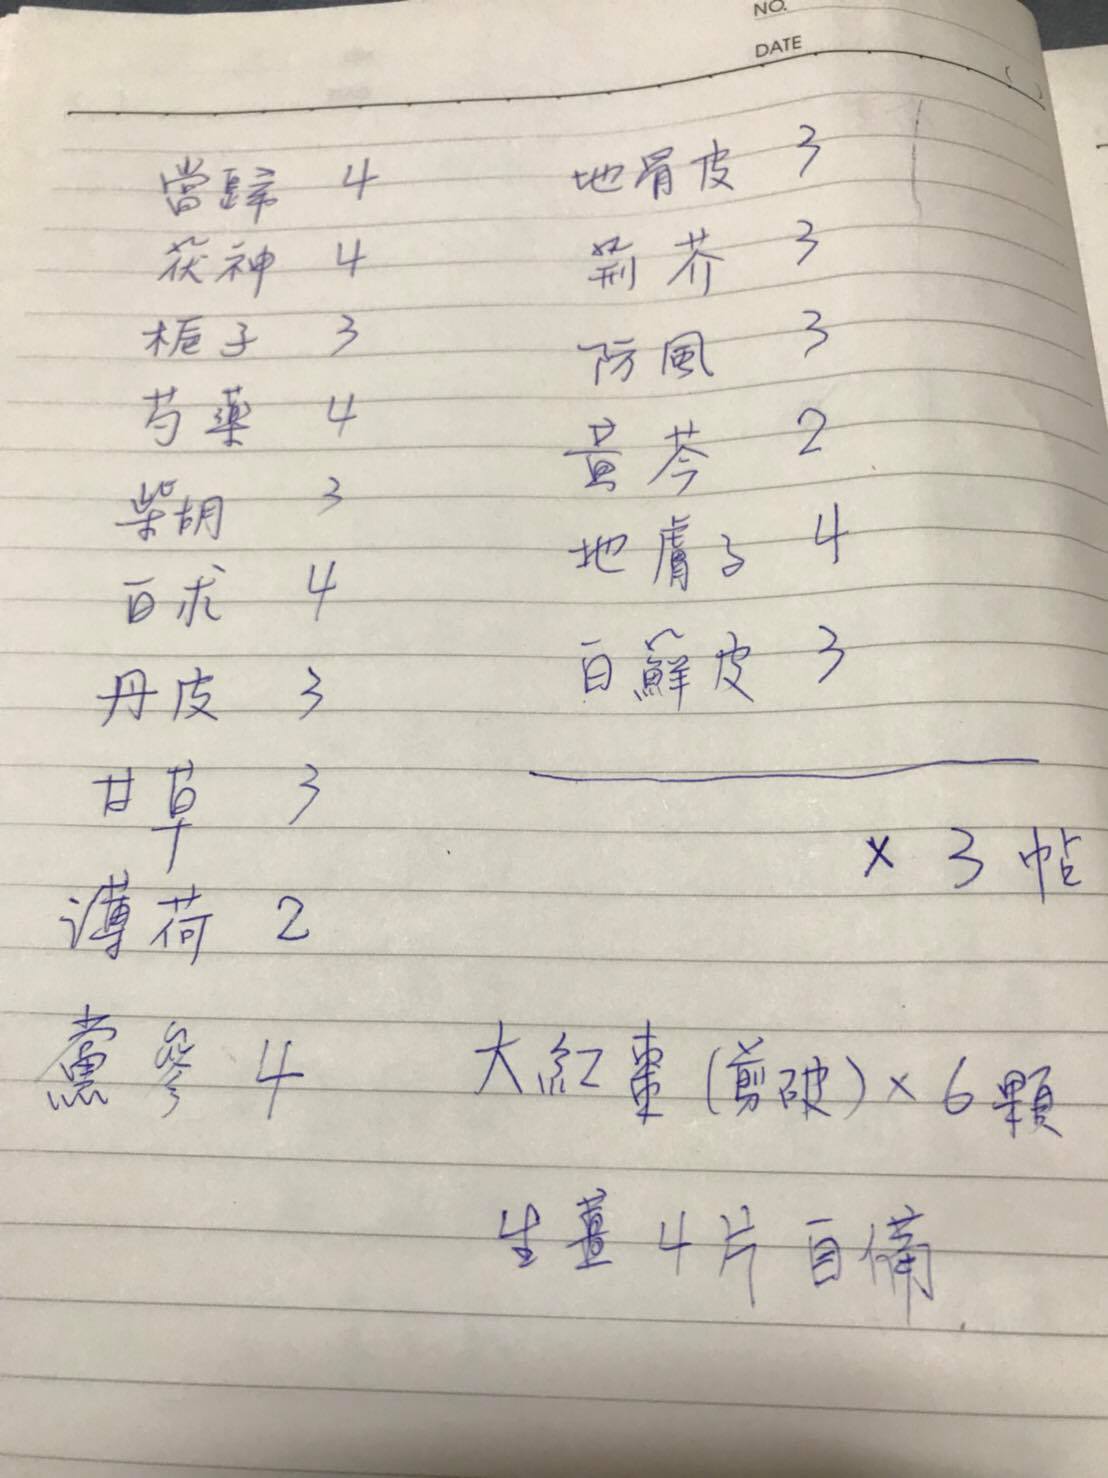 NO.
DATE
當歸 4
茯神 4
梔子 3
芍藥 4
柴胡 3
白朮 4
丹皮 3
甘草 3
薄荷 2
黨參 4
地骨皮 3
荊芥 3
防風 3
黃芩 2
地膚子 4
白蘚皮 3
× 3 帖
大紅棗(剪破)×6顆
生薑4片自備